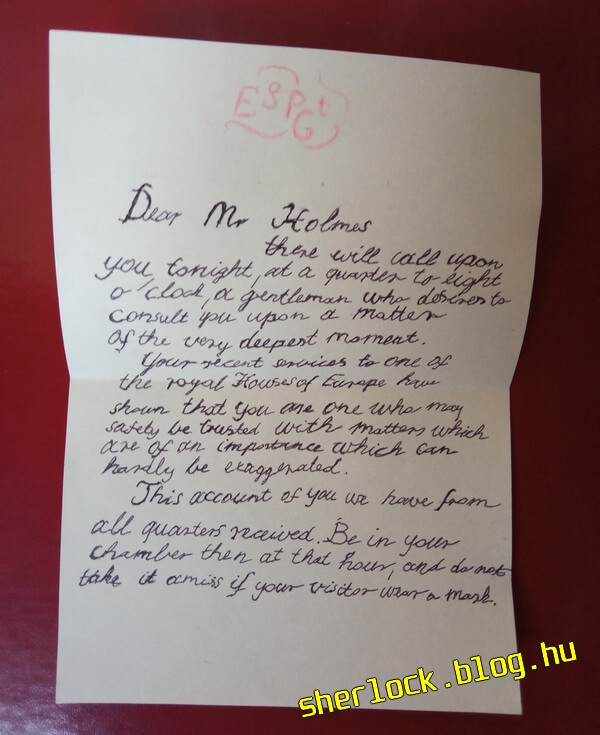 EgPGt
Dear Mr Holmes
there will call upon
you, tonight, at a quarter to eight
o'clock, a gentleman who desires to
consult you upon a matter
of the very deepest moment.
Your recent services to one of
the royal Houses of Europe have
shown that you are one who may
safely be trusted with matters which
are of an importance which can
hardly be exaggerated.
This account of you we have from
all quarters received. Be in your
chamber then at that hour, and do not
take it amiss if your visitor wear a mask.
sherlock.blog.hu